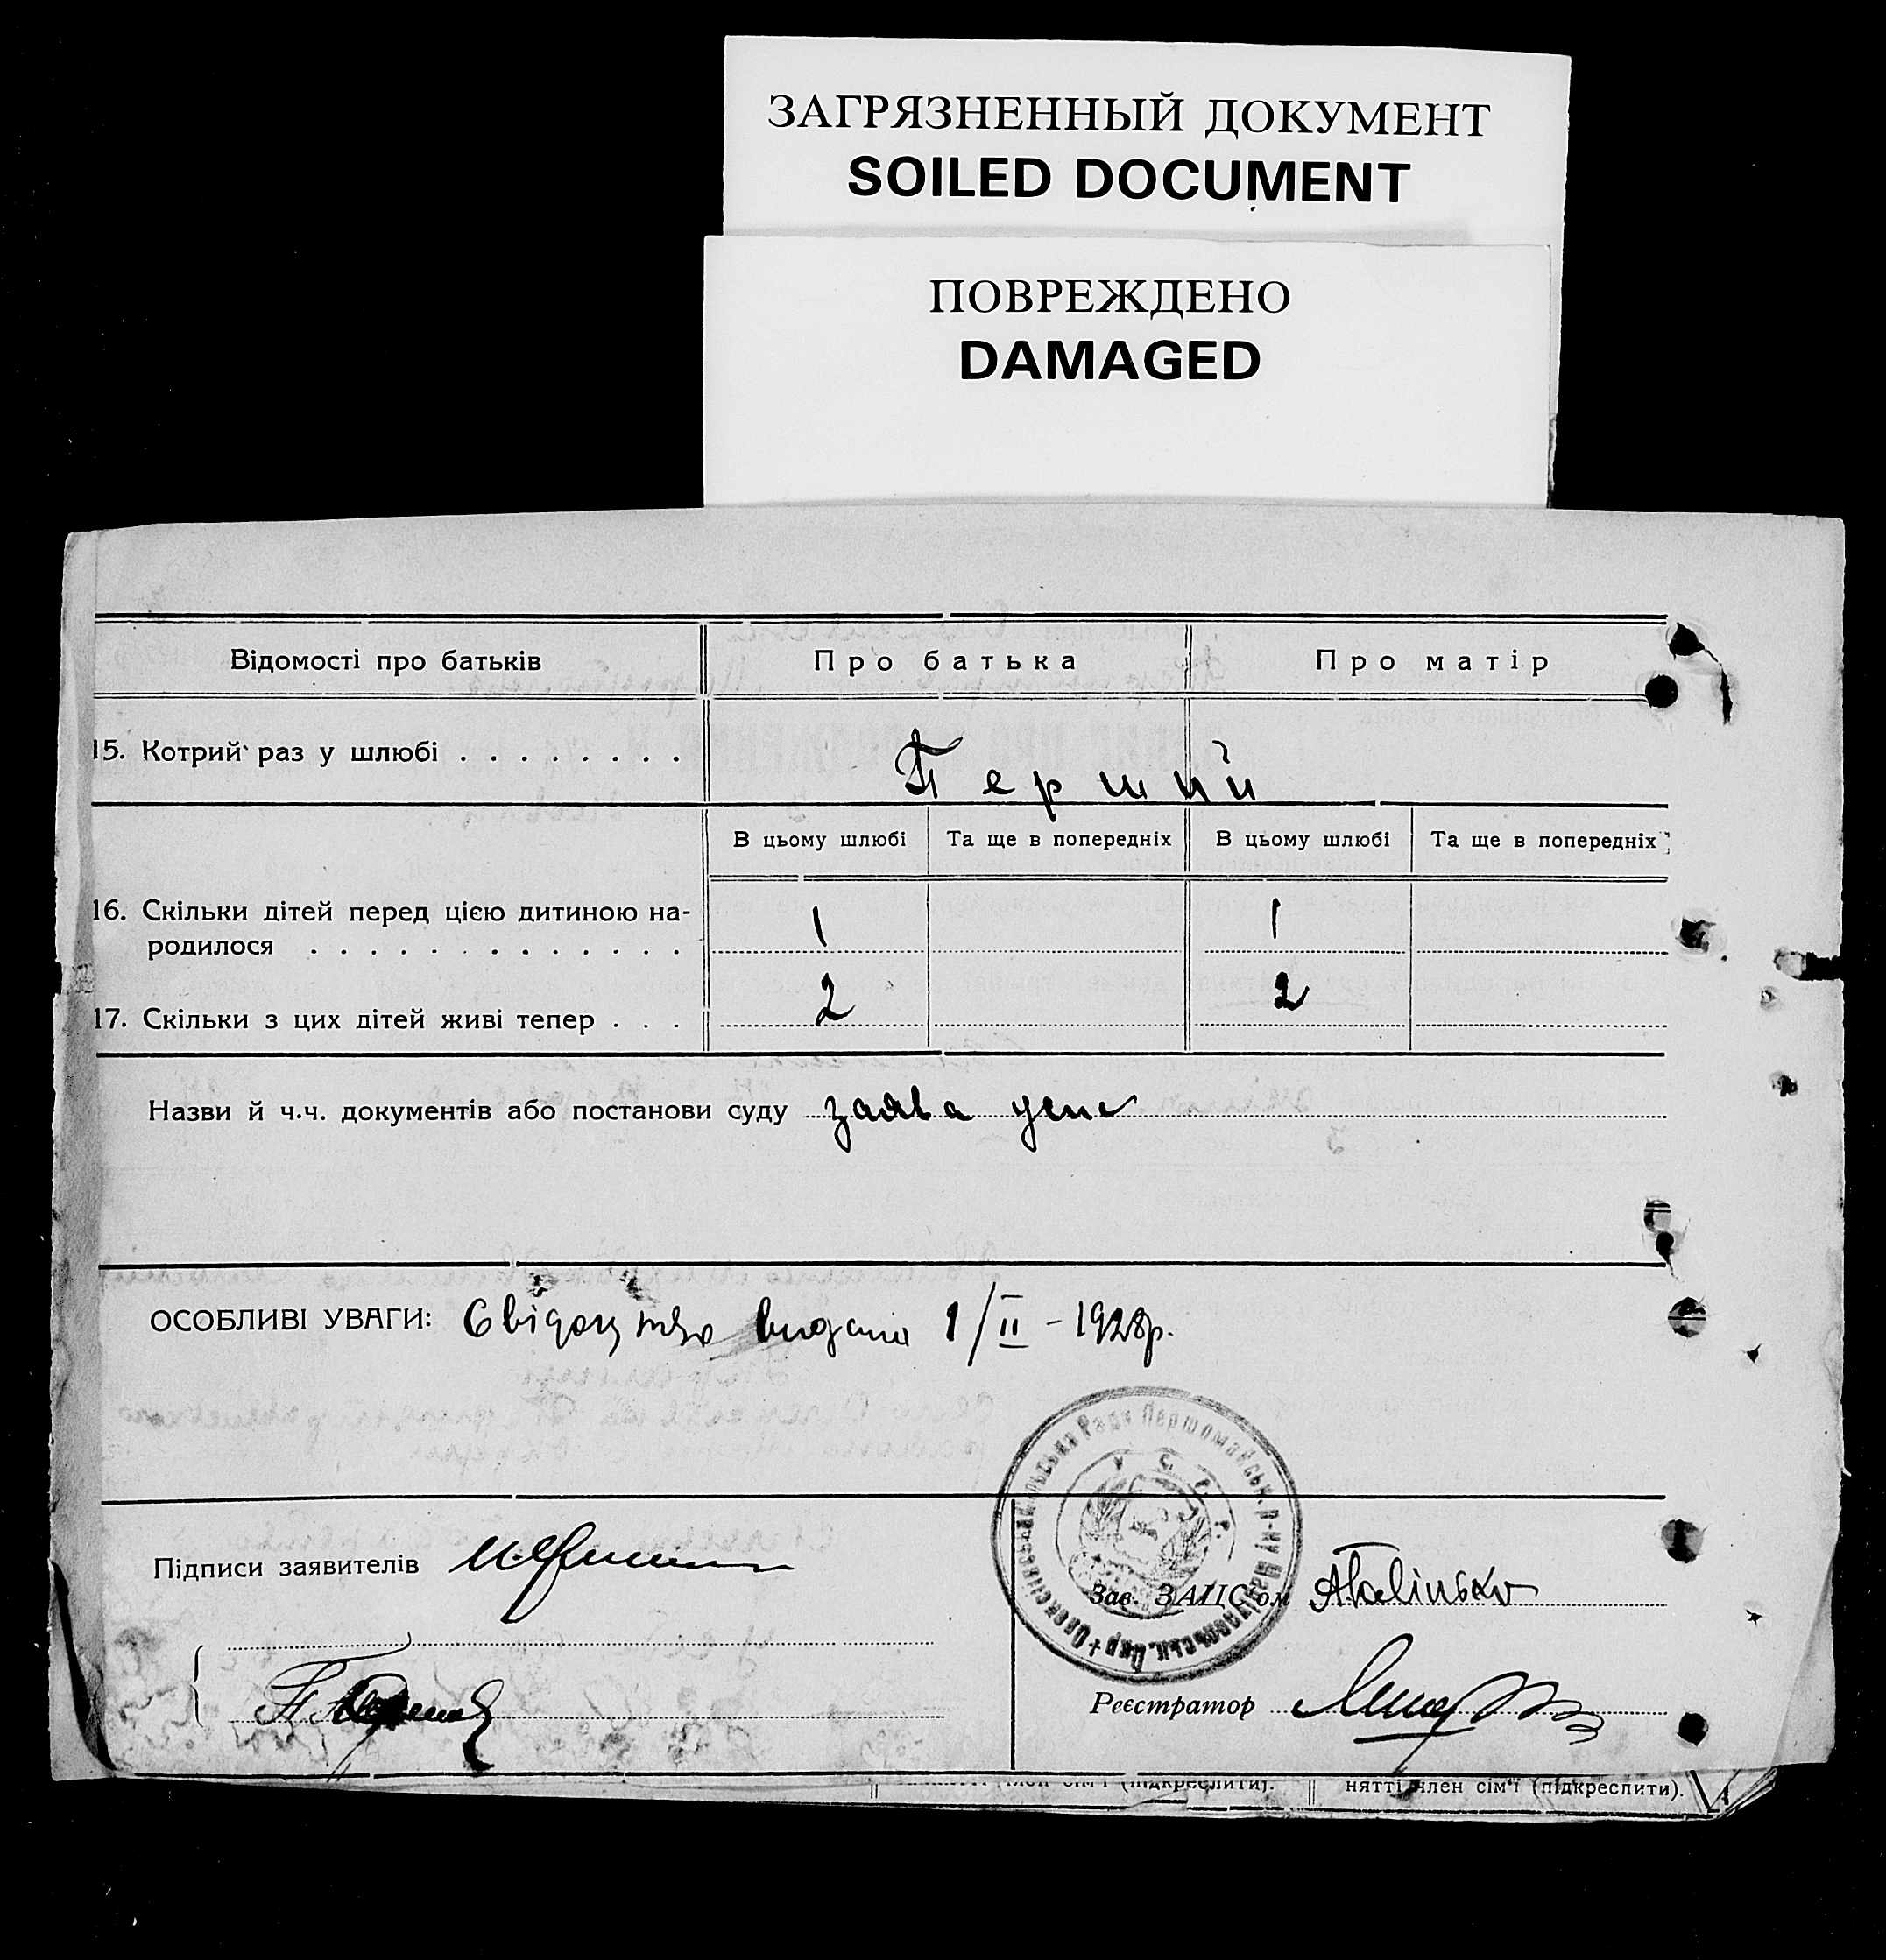 ЗАГРЯЗНЕННЫЙ ДОКУМЕНТ
SOILED DOCUMENT
ПОВРЕЖДЕНО
DAMAGED
Відомості про батьків Про батька Про матір
15. Котрий раз у шлюбі . . . . . . . . Перший
В цьому шлюбі Та ще в попередніх В цьому шлюбі Та ще в попередніх
16. Скільки дітей перед цією дитиною на-
родилося . . . . . . . . . . . . . 1 1
17. Скільки з цих дітей живі тепер . . . 2 2
Назви й ч.ч. документів або постанови суду заява усна
ОСОБЛИВІ УВАГИ: Свідоцтво видана 1/II - 1928р.
Рада Першомайськ. р-ну Маріупольськ. Окр.
У.С.Р.Р.
Підписи заявителів
Зав. ЗАГС'ом
Реєстратор
член сім'ї (підкреслити). нятті член сім'ї (підкреслити).